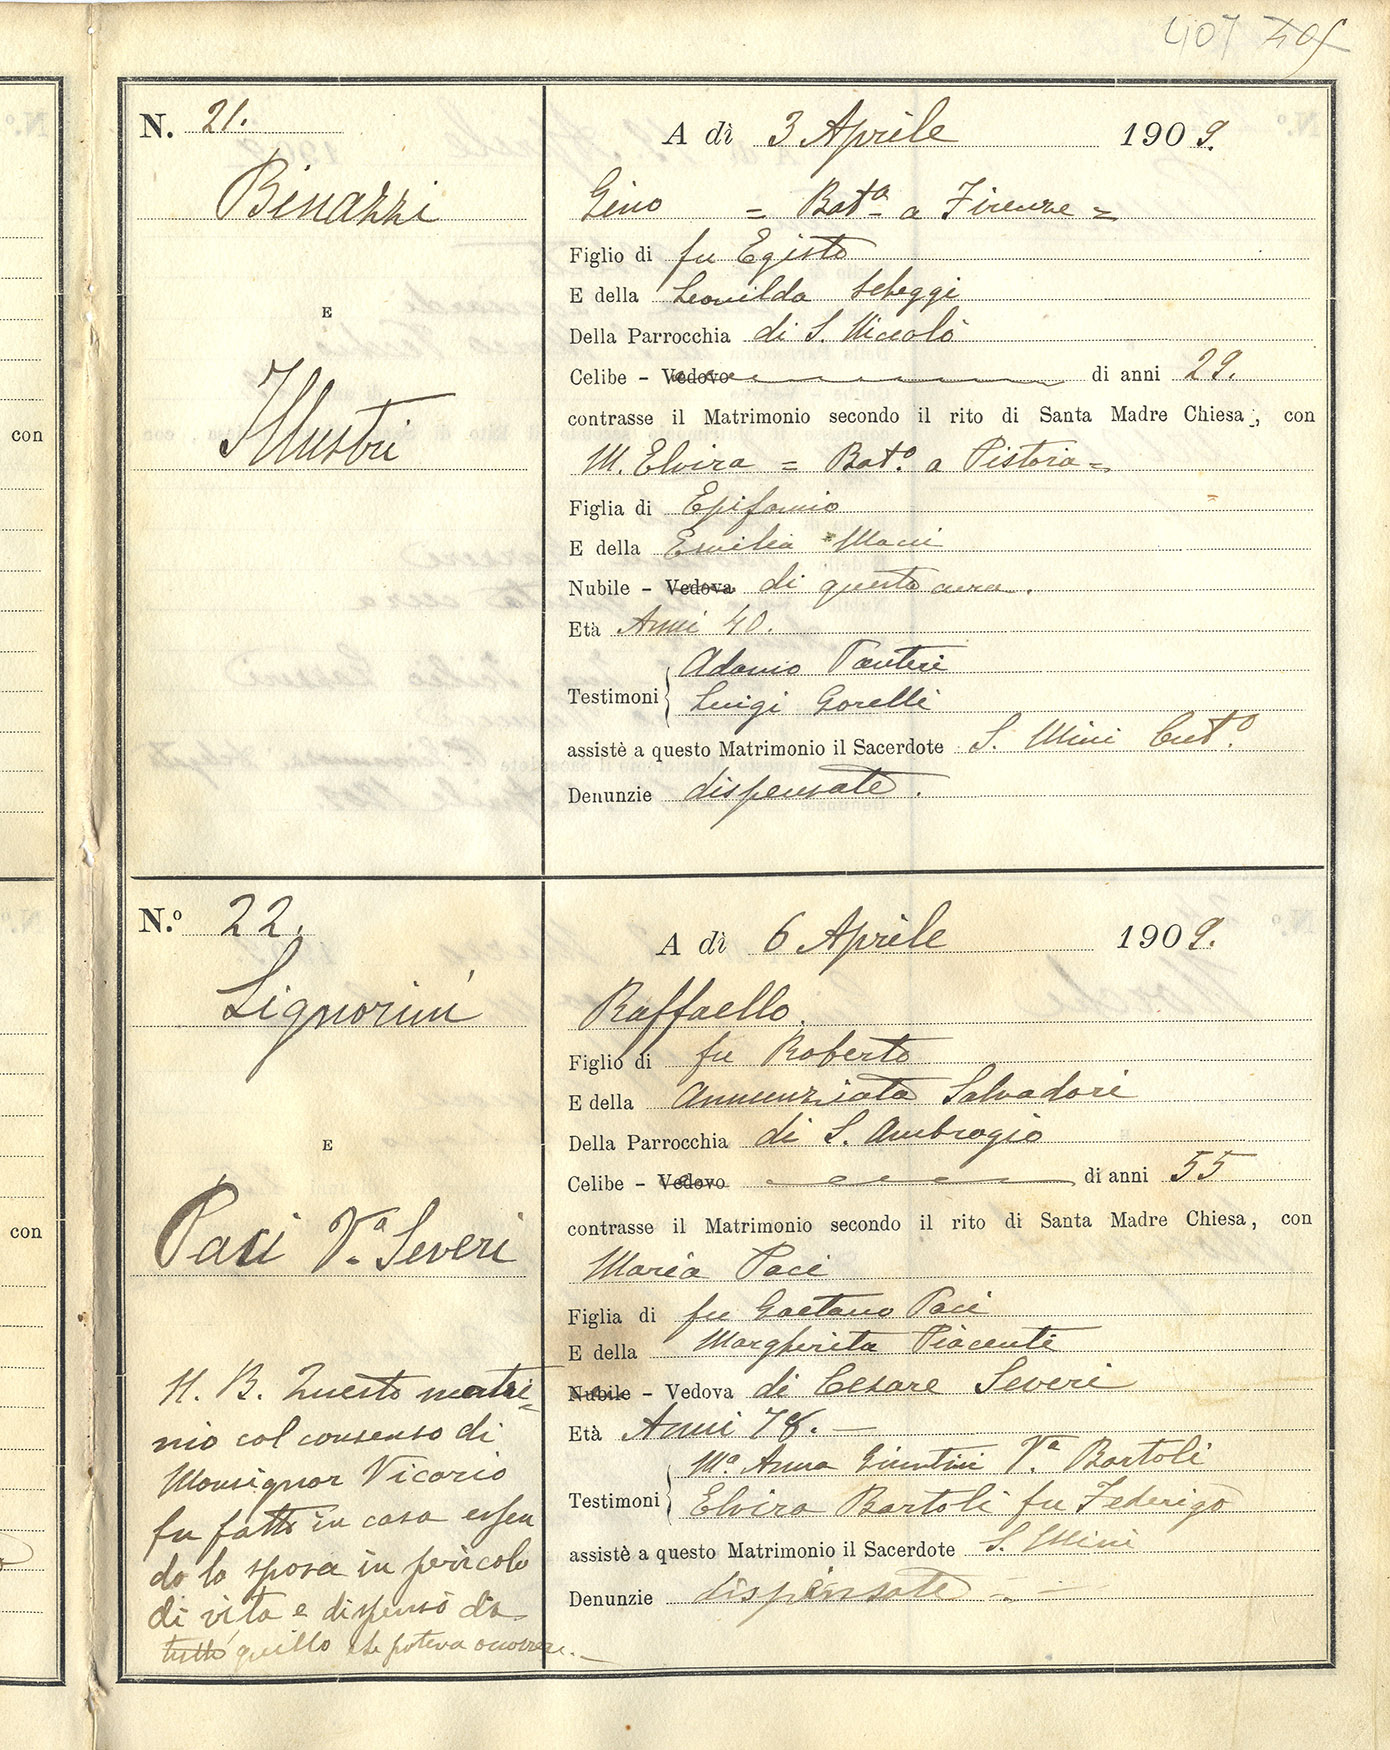 407 405
N. 21.
Binazzi
E
Illustri
A dì 3 Aprile 1909.
Gino = Bat.a a Firenze =
Figlio di fu Egisto
E della Leonilda Scheggi
Della Parrocchia di S. Niccolò
Celibe - Vedovo di anni 29.
contrasse il Matrimonio secondo il rito di Santa Madre Chiesa, con
M. Elvira = Bat.o a Pistoia =
Figlia di Epifanio
E della Emilia Macii
Nubile - Vedova di questa cura.
Età Anni 40.
Testimoni Adamo Panteri
Luigi Gorelli
assistè a questo Matrimonio il Sacerdote S. Mini Cur.o
Denunzie dispensate.
N.o 22.
Signorini
E
Paci V.a Severi
N. B. Questo matri=
nio col consenso di
Monsignor Vicario
fu fatto in casa essen
do la sposa in pericolo
di vita e dispensò da
tutto quello che poteva occorrere.
A dì 6 Aprile 1909.
Raffaello.
Figlio di fu Roberto
E della Annunziata Salvadori
Della Parrocchia di S. Ambrogio
Celibe - Vedovo di anni 55
contrasse il Matrimonio secondo il rito di Santa Madre Chiesa, con
Maria Paci
Figlia di fu Gaetano Paci
E della Margherita Piacenti
Nubile - Vedova di Cesare Severi
Età Anni 78. -
Testimoni M.a Anna Giuntini V.a Bartoli
Elvira Bartoli fu Federigo
assistè a questo Matrimonio il Sacerdote S. Mini
Denunzie dispensate
con
con